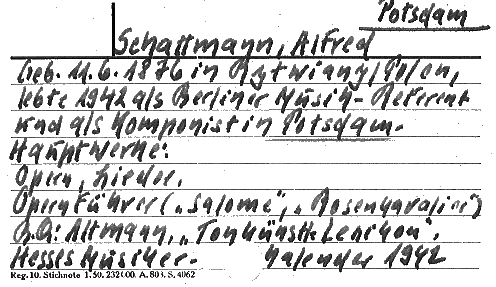 Potsdam
Schattmann, Alfred
Geb. 11.6.1876 in Rytwiany/Polen,
lebte 1942 als Berliner Musik-Referent
und als Komponist in Potsdam.
Hauptwerke:
Opern, Lieder,
Opernführer („Salome“, „Rosenkavalier“)
Altmann, „Tonkünstl. Lexikon“.
Hesses Musiker-Kalender 1942
Reg. 10. Stichnote 1. 50. 232000. A. 803. S. 4062